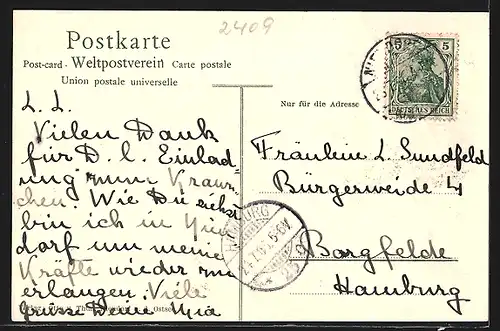 2409
Postkarte
Post-card - Weltpostverein Carte postale
Union postale universelle
Nur für die Adresse
5
DEUTSCHES REICH
L. L.
Vielen Dank
für D. l. Einlad
ung zum
Wie Du siehst
bin ich in
dorf um meine
Kräfte wieder zu
erlangen. Viele
Grüsse Deine
Fräulein L. Sundfeld
Bürgerweide 4
Borgfelde
Hamburg
HAMBURG
5-6N
Ostsee